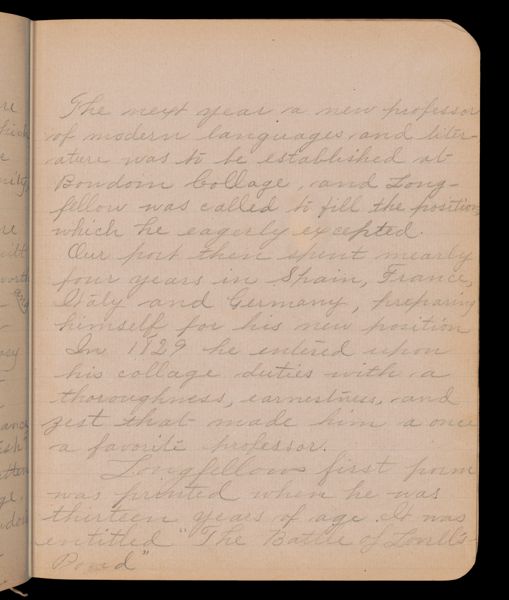 The next year a new professor
of modern languages and liter-
ature was to be established at
Bowdoin Collage, and Long-
fellow was called to fill the position
which he eagerly excepted.
Our port then spent nearly
four years in Spain, France,
Italy and Germany, preparing
himself for his new position
In 1829 he entired upon
his collage duties with a
thoroughness, earnestness, and
zest that made him a once
a favorite professor.
Longfellow first poem
was printed when he was
thirteen years of age. It was
entitled "The Battle of Lovell's
Pond"